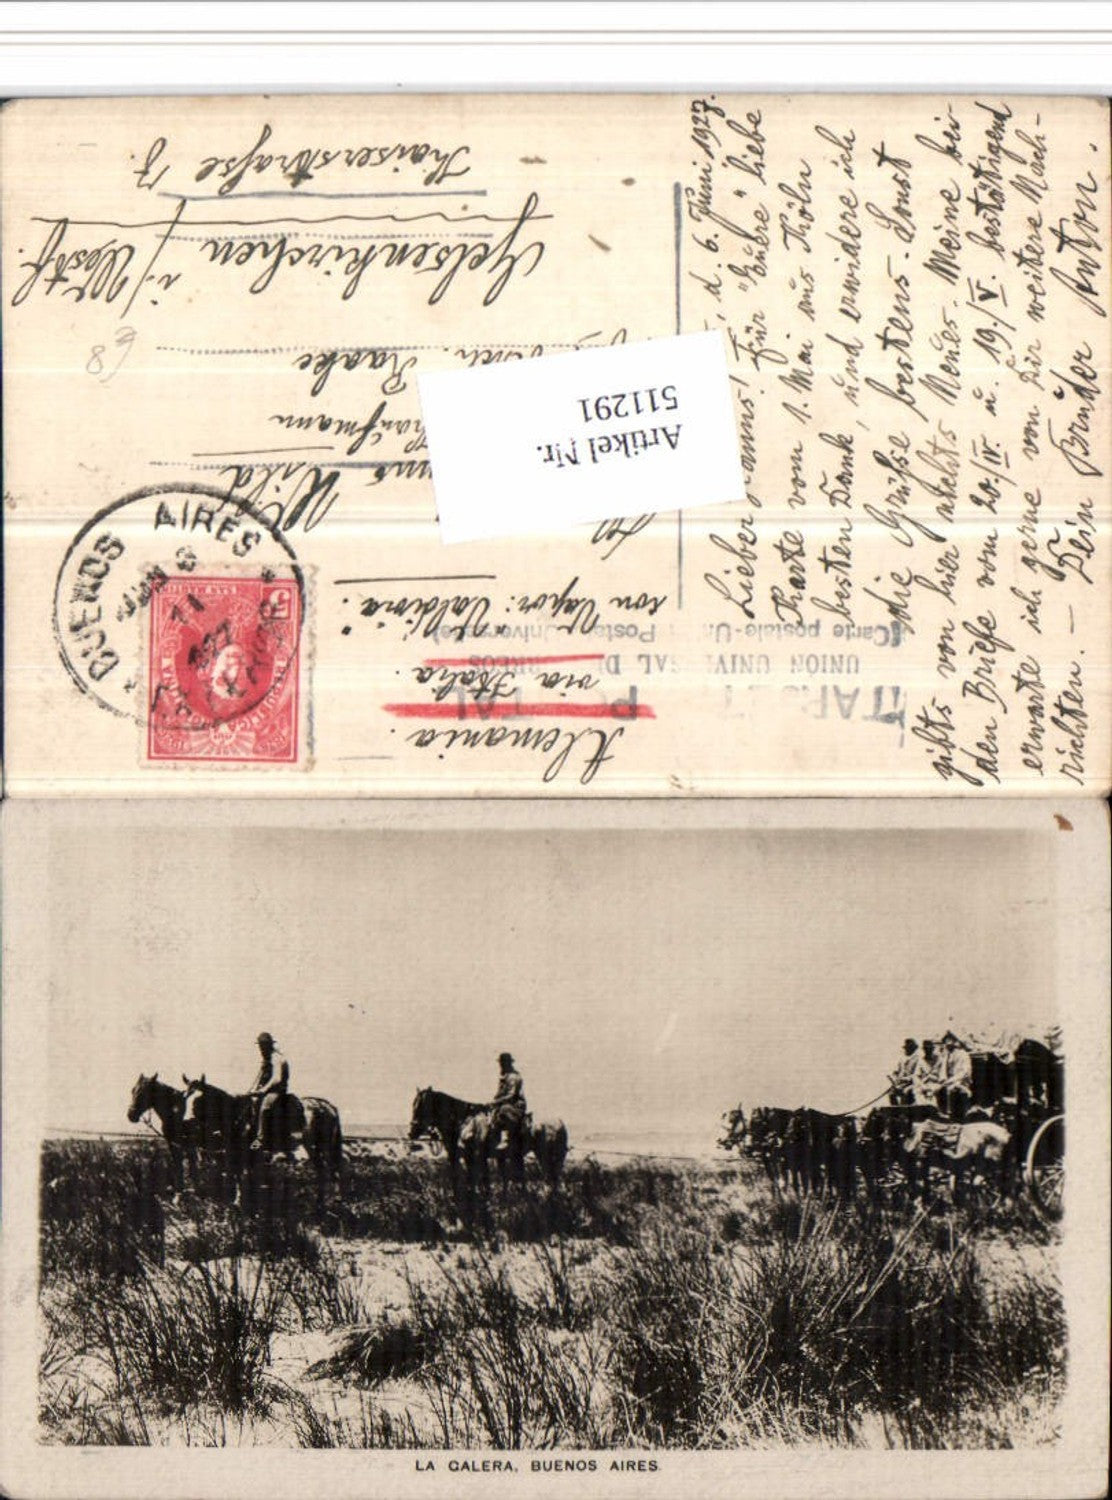 TARJETA POSTAL
UNION UNIVERSAL DE CORREOS
(Carte postale-Union Postale Universelle)
Alemania.
via Italia.
con Vapor: "Valdivia".
Wild
Kaufmann
Raake
Gelsenkirchen
i/Westf.
Kaiserstraße 7.
68
Artikel Nr.
511291
BUENOS AIRES
JUN 8
11
927
5
SAN MARTIN
, d. 6. Juni 1927.
Lieber Hanns! Für "Euere" liebe
Karte vom 1. Mai aus Köln
besten Dank, und erwidere ich
die Grüße bestens. Sonst
gibts von hier nichts Neues. Meine bei-
den Briefe vom 20./IV. u. 19./V. bestätigend
erwarte ich gerne von Dir weitere Nach-
richten. — Dein Bruder Anton.
LA GALERA, BUENOS AIRES.